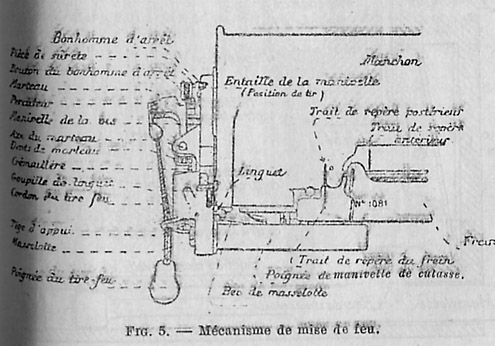 Bonhomme d'arrêt
Pièce de sûreté
Bouton du bonhomme d'arrêt
Marteau
Percuteur
Manivelle de la vis
Axe du marteau
Dents de marteau
Crémaillère
Goupille de linguet
Cordon du tire feu
Tige d'appui
Masselotte
Poignée du tire-feu
Manchon
Entaille de la manivelle
(Position de tir)
Trait de repère postérieur
Trait de repère
antérieur
Linguet
N° 1081
Frein
(Trait de repère du frein
Poignée de manivelle de culasse.
Bec de masselotte
FIG. 5. — Mécanisme de mise de feu.